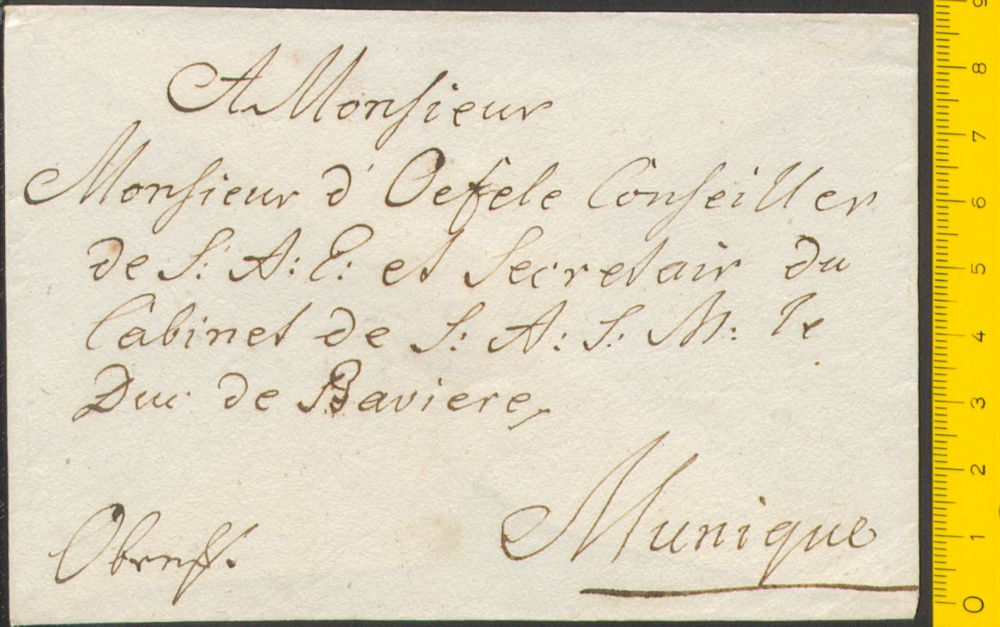 A Monsieur
Monsieur d' Oefele Conseiller
de S: A: E: et Secretair du
Cabinet de S: A: S: M: le
Duc de Baviere,
Munique
9
8
7
6
5
4
3
2
1
0